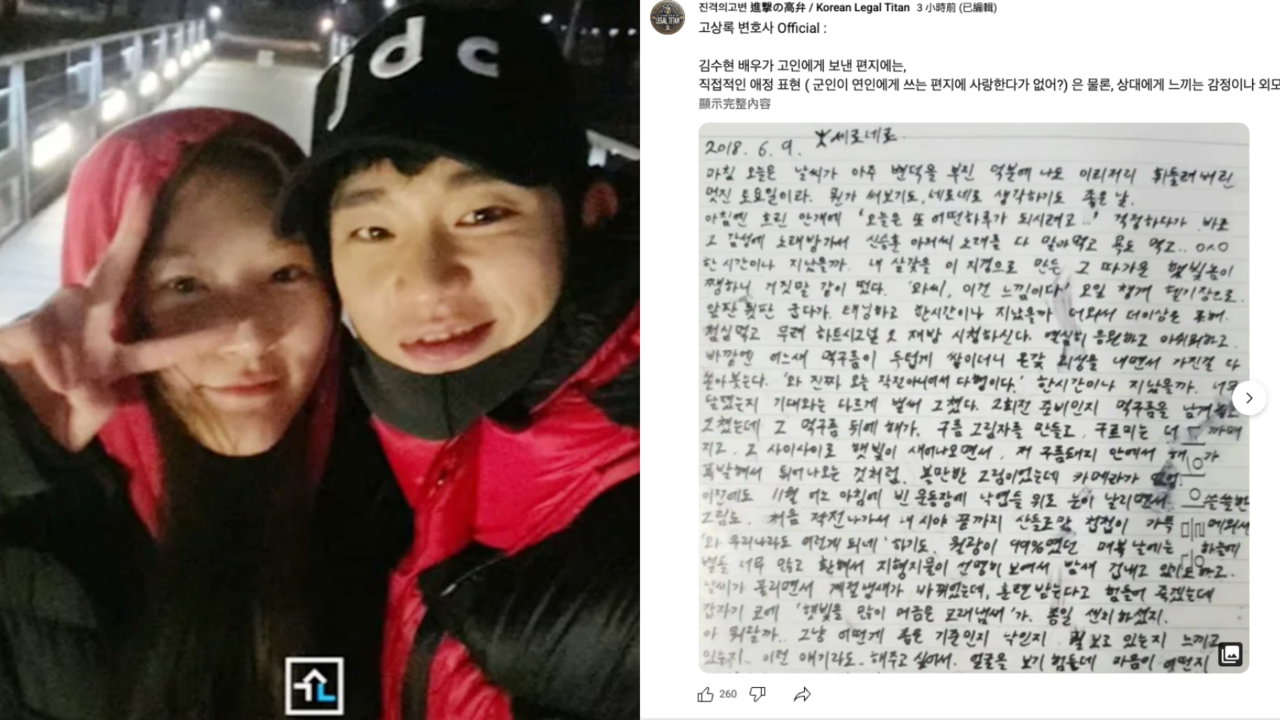 jdc
진격의고변 進撃の高弁 / Korean Legal Titan 3 小時前 (已編輯)
고상록 변호사 Official :
김수현 배우가 고인에게 보낸 편지에는,
직접적인 애정 표현 ( 군인이 연인에게 쓰는 편지에 사랑한다가 없어?) 은 물론, 상대에게 느끼는 감정이나 외모
顯示完整內容
2018. 6. 9. 세로네로.
마침 오늘은 날씨가 아주 변덕을 부린 덕분에 나도 이리저리 휘둘려버린
멋진 토요일이라. 뭔가 써보기도, 네로네로 생각하기도 좋은 날.
아침엔 흐린 안개에 '오늘은 또 어떤하루가 되시려고..' 걱정하다가 바로
그 감성에 노래방가서 신승훈 아저씨 노래를 다 말아먹고 욕도 먹고.. ㅇㅅㅇ
한시간이나 지났을까. 내 살갗을 이 지경으로 만든 그 따가운 햇빛놈이
쨍하니 거짓말 같이 떴다. '와씨, 이건 느낌이다' 오일 챙겨 헬기장으로.
앞판 뒷판 굽다가. 태닝하고 한시간이나 지났을까 더워서 더이상은 못해.
점심먹고 무려 하트시그널 오 재방 시청하신다. 열심히 응원하고 아쉬워하고
바깥엔 어느새 먹구름이 두텁게 쌓이더니 온갖 괴성을 내면서 가진걸 다
쏟아붓는다. '와 진짜 오늘 작전아니어서 다행이다.' 한시간이나 지났을까. 너무
담았는지 기대와는 다르게 벌써 그쳤다. 2회전 준비인지 먹구름을 남겨놓고
그쳤는데 그 먹구름 뒤에 해가. 구름 그림자를 만들고, 구르미는 더 까매
지고. 그 사이사이로 햇빛이 새어나오면서, 저 구름돼지 안에서 해가
폭발해서 튀어나오는 것처럼. 볼만한 그림이었는데 카메라가 없었
이전에도 11월 어느 아침에 빈 운동장에 낙엽들 위로 눈이 날리면서 쓸쓸한
그림도. 처음 작전나가서 내 시야 끝까지 산들로만 첩첩이 가득 메워서
'와 우리나라도 이렇게 되네' 하기도. 월광이 99%였던 매복날에는 하늘에
별들 너무 많고 환해서 지형지물이 선명히 보여서 밤새 겁내고 있기도 하고.
날씨가 풀리면서 계절냄새가 바뀌었는데, 훈련받는다고 힘들어 죽겠는데
갑자기 코에 '햇빛을 많이 머금은 모래냄새'가. 종일 센치하셨지.
아 뭐랄까.. 그냥 어떻게 좁은 기준인지 낙인지. 뭘 보고 있는지 느끼고
있는지.. 이런 얘기라도.. 해주고 싶어서. 얼굴을 보기 힘들데 마음이 어떤지
260